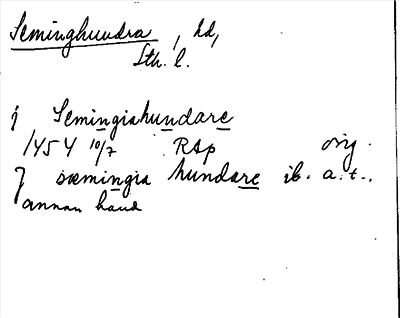 Seminghundra, hd,
Sth. l.
j Semingiahundare
1454 10/7 RAp orig.
J sæmingia hundare ib. a.t.,
annan hand